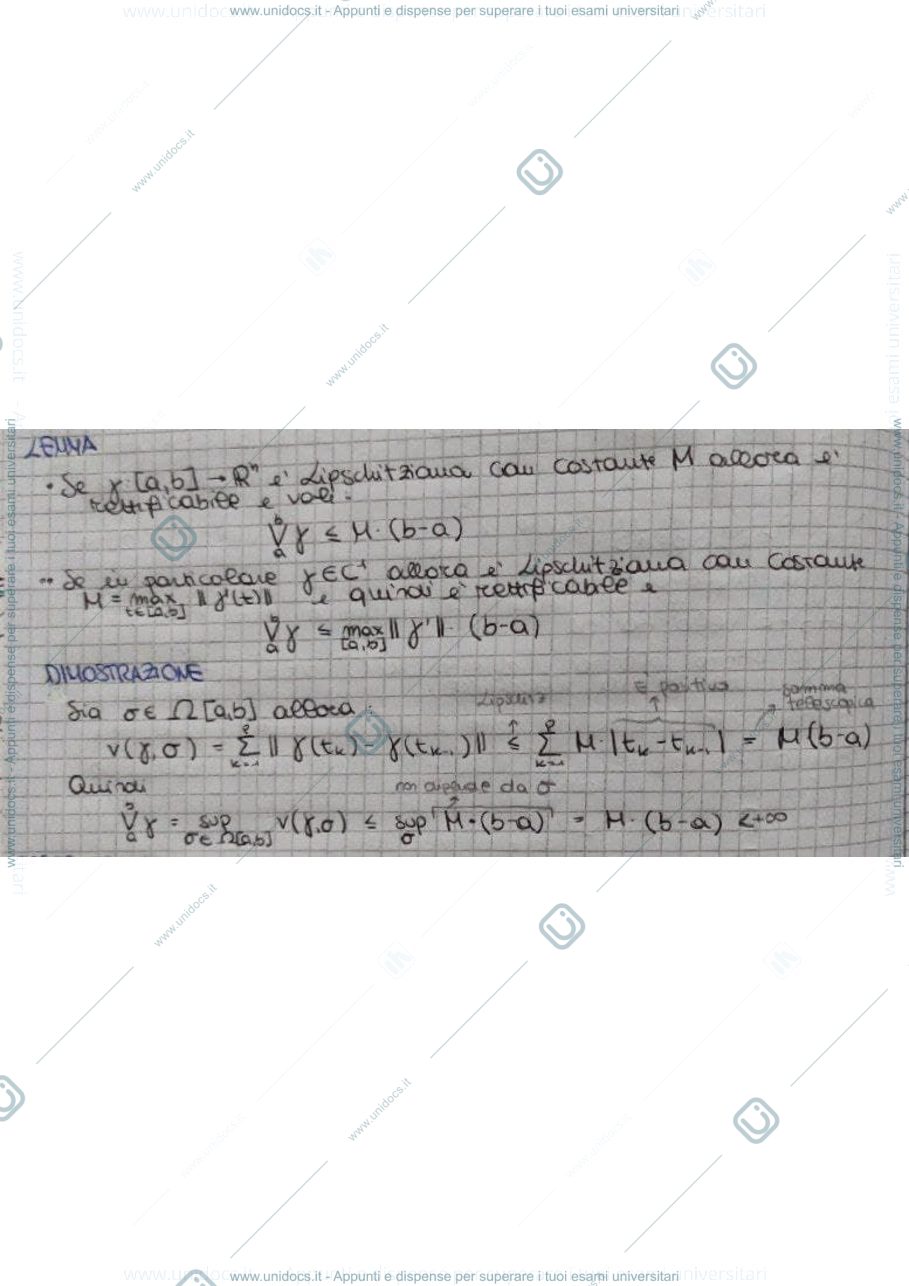 www.unidocs.it - Appunti e dispense per superare i tuoi esami universitari
LEMMA
• Se γ [a,b] → ℝⁿ è Lipschitziana con costante M allora è
rettificabile e vale:
V_a^b γ ≤ M·(b-a)
•• Se in particolare γ∈C¹ allora è Lipschitziana con costante
M = max_{t∈[a,b]} ‖γ'(t)‖ e quindi è rettificabile e
V_a^b γ ≤ max_{[a,b]} ‖γ'‖·(b-a)
DIMOSTRAZIONE
Lipschitz È positivo somma telescopica
Sia σ∈ Ω[a,b] allora:
v(γ,σ) = Σ_{k=1}^p ‖γ(t_k) - γ(t_{k-1})‖ ≤ Σ_{k=1}^p M·|t_k - t_{k-1}| = M(b-a)
Quindi non dipende da σ
V_a^b γ = sup_{σ∈Ω[a,b]} v(γ,σ) ≤ sup_σ M·(b-a) = M·(b-a) <+∞
www.unidocs.it - Appunti e dispense per superare i tuoi esami universitari